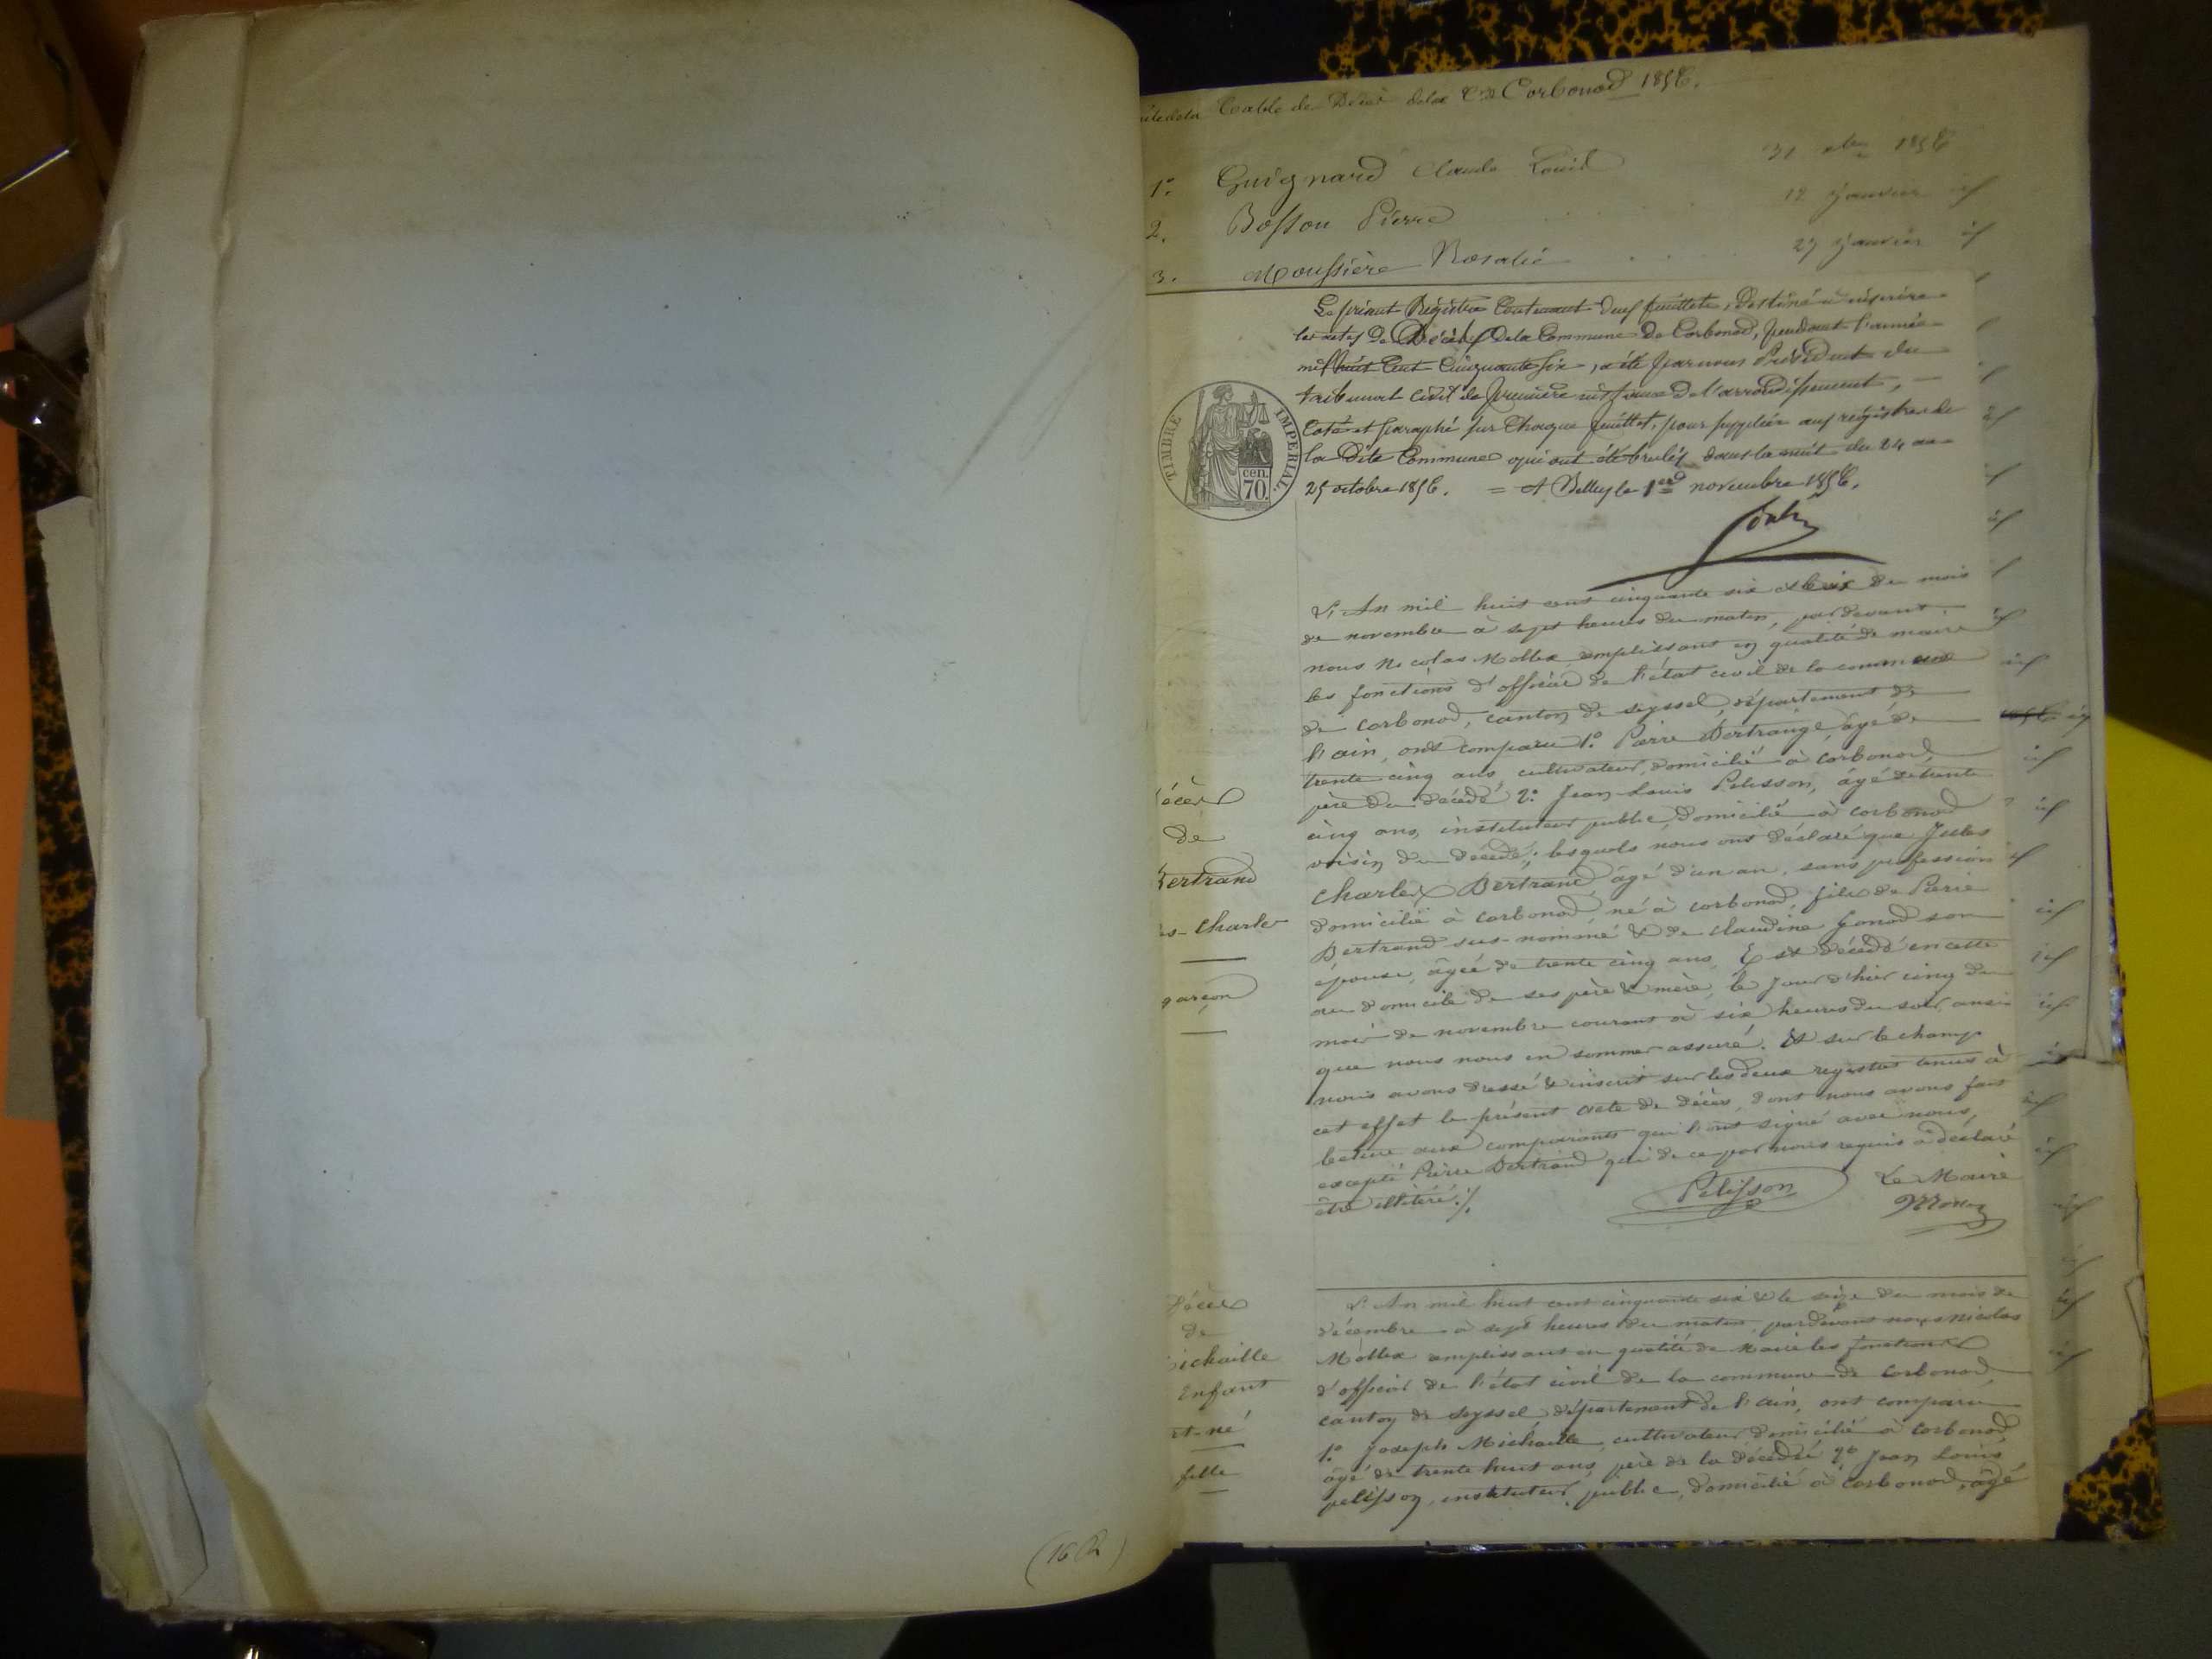 Table de Décès de la Cne Corbonod 1856.
1°. Guignard Claude Louis 31 xbre 1856
2. Bosson Pierre 12 janvier id
3. Moussière Rosalie 27 janvier id
Le présent Régistre Contenant deux feuillets, Destiné à inscrire
les actes de Décès De la Commune De Corbonod, pendant l'année
mil huit Cent Cinquante Six, a été par nous Président du
tribunal Civil de première instance De l'arrondissement,
Coté et paraphé sur Chaque feuillet, pour suppléer aux registres de
la Dite Commune qui ont été brulés dans la nuit du 24 au
25 octobre 1856. = A Belley le 1er novembre 1856.
TIMBRE IMPERIAL
cen.
70.
L'An mil huit cent cinquante six & le six du mois
de novembre à sept heures du matin, pardevant
nous Nicolas Mollex remplissant en qualité de maire
les fonctions d'officier de l'état civil de la commune
de Corbonod, canton de Seyssel, département de
l'ain, ont comparu 1° Pierre Bertrand, âgé de
trente cinq ans, cultivateur, domicilié à Corbonod,
père du décédé 2° Jean Louis Pelisson, âgé de trente
cinq ans, instituteur public, domicilié à Corbonod
voisin du décédé; lesquels nous ont déclaré que Jules
Charles Bertrand, âgé d'un an, sans profession
domicilié à Corbonod, né à Corbonod, fils de Pierre
Bertrand sus-nommé & de Claudine Gonod son
épouse, âgée de trente cinq ans, Est décédé en cette
au domicile de ses père & mère, le jour d'hier cinq du
mois de novembre courant à six heures du soir, ainsi
que nous nous en sommes assuré. Et sur le champ
nous avons dressé & inscrit sur les deux registres tenus à
cet effet le présent acte de décès, dont nous avons fait
lecture aux comparants qui l'ont signé avec nous,
excepté Pierre Bertrand qui de ce par nous requis a déclaré
être illitéré ./.
Pelisson Le Maire
écès
de
Bertrand
es-Charles
garçon
L'An mil huit cent cinquante six & le seize du mois de
décembre à sept heures du matin, pardevant nous Nicolas
Mollex remplissant en qualité de Maire les fonctions
d'officier de l'état civil de la commune de Corbonod,
canton de Seyssel, département de l'ain, ont comparu
1° Joseph Michaille, cultivateur domicilié à Corbonod
âgé de trente huit ans, père de la décédée 2° Jean Louis
pelisson, instituteur public, domicilié à Corbonod, âgé
Décès
de
ichaille
Enfant
rt-né
fille